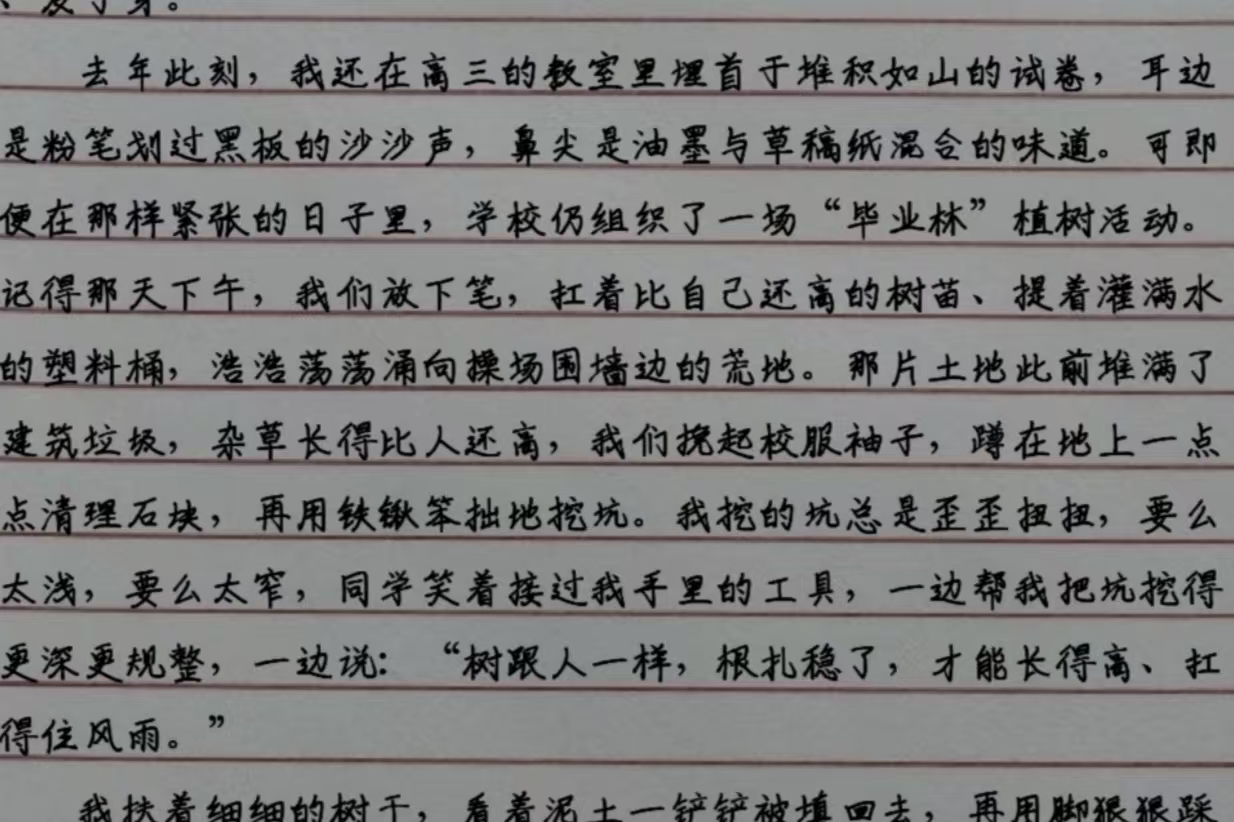 去年此刻，我还在高三的教室里埋首于堆积如山的试卷，耳边
是粉笔划过黑板的沙沙声，鼻尖是油墨与草稿纸混合的味道。可即
便在那样紧张的日子里，学校仍组织了一场“毕业林”植树活动。
记得那天下午，我们放下笔，扛着比自己还高的树苗、提着灌满水
的塑料桶，浩浩荡荡涌向操场围墙边的荒地。那片土地此前堆满了
建筑垃圾，杂草长得比人还高，我们挽起校服袖子，蹲在地上一点
点清理石块，再用铁锹笨拙地挖坑。我挖的坑总是歪歪扭扭，要么
太浅，要么太窄，同学笑着接过我手里的工具，一边帮我把坑挖得
更深更规整，一边说：“树跟人一样，根扎稳了，才能长得高、扛
得住风雨。”
我扶着细细的树干，看着泥土一铲铲被填回去，再用脚狠狠踩